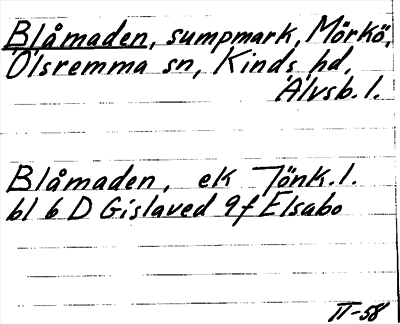 Blåmaden, sumpmark, Mörkö,
Ölsremma sn, Kinds hd,
Älvsb. l.
Blåmaden, ek Jönk. l.
bl 6 D Gislaved 9f Elsabo
II-58